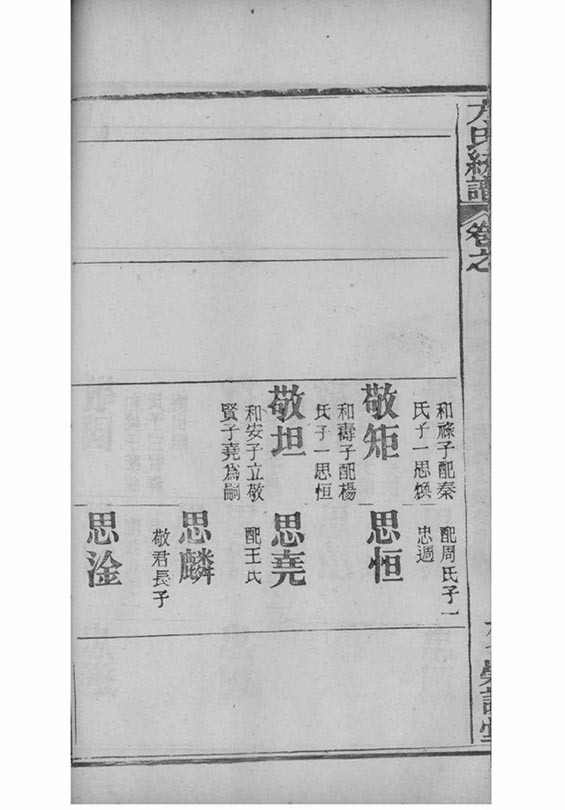 方氏統譜
卷之
和祿子配秦
氏子一思煥
敬矩
和壽子配楊
氏子一思恒
敬坦
和安子立敬
賢子堯爲嗣
配周氏子一
忠週
思恒
思堯
配王氏
思麟
敬君長子
思淦